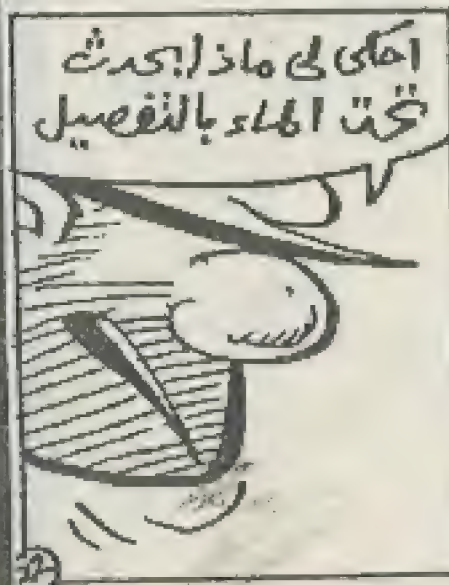 احكى لى ماذا يحدث
تحت الماء بالتفصيل